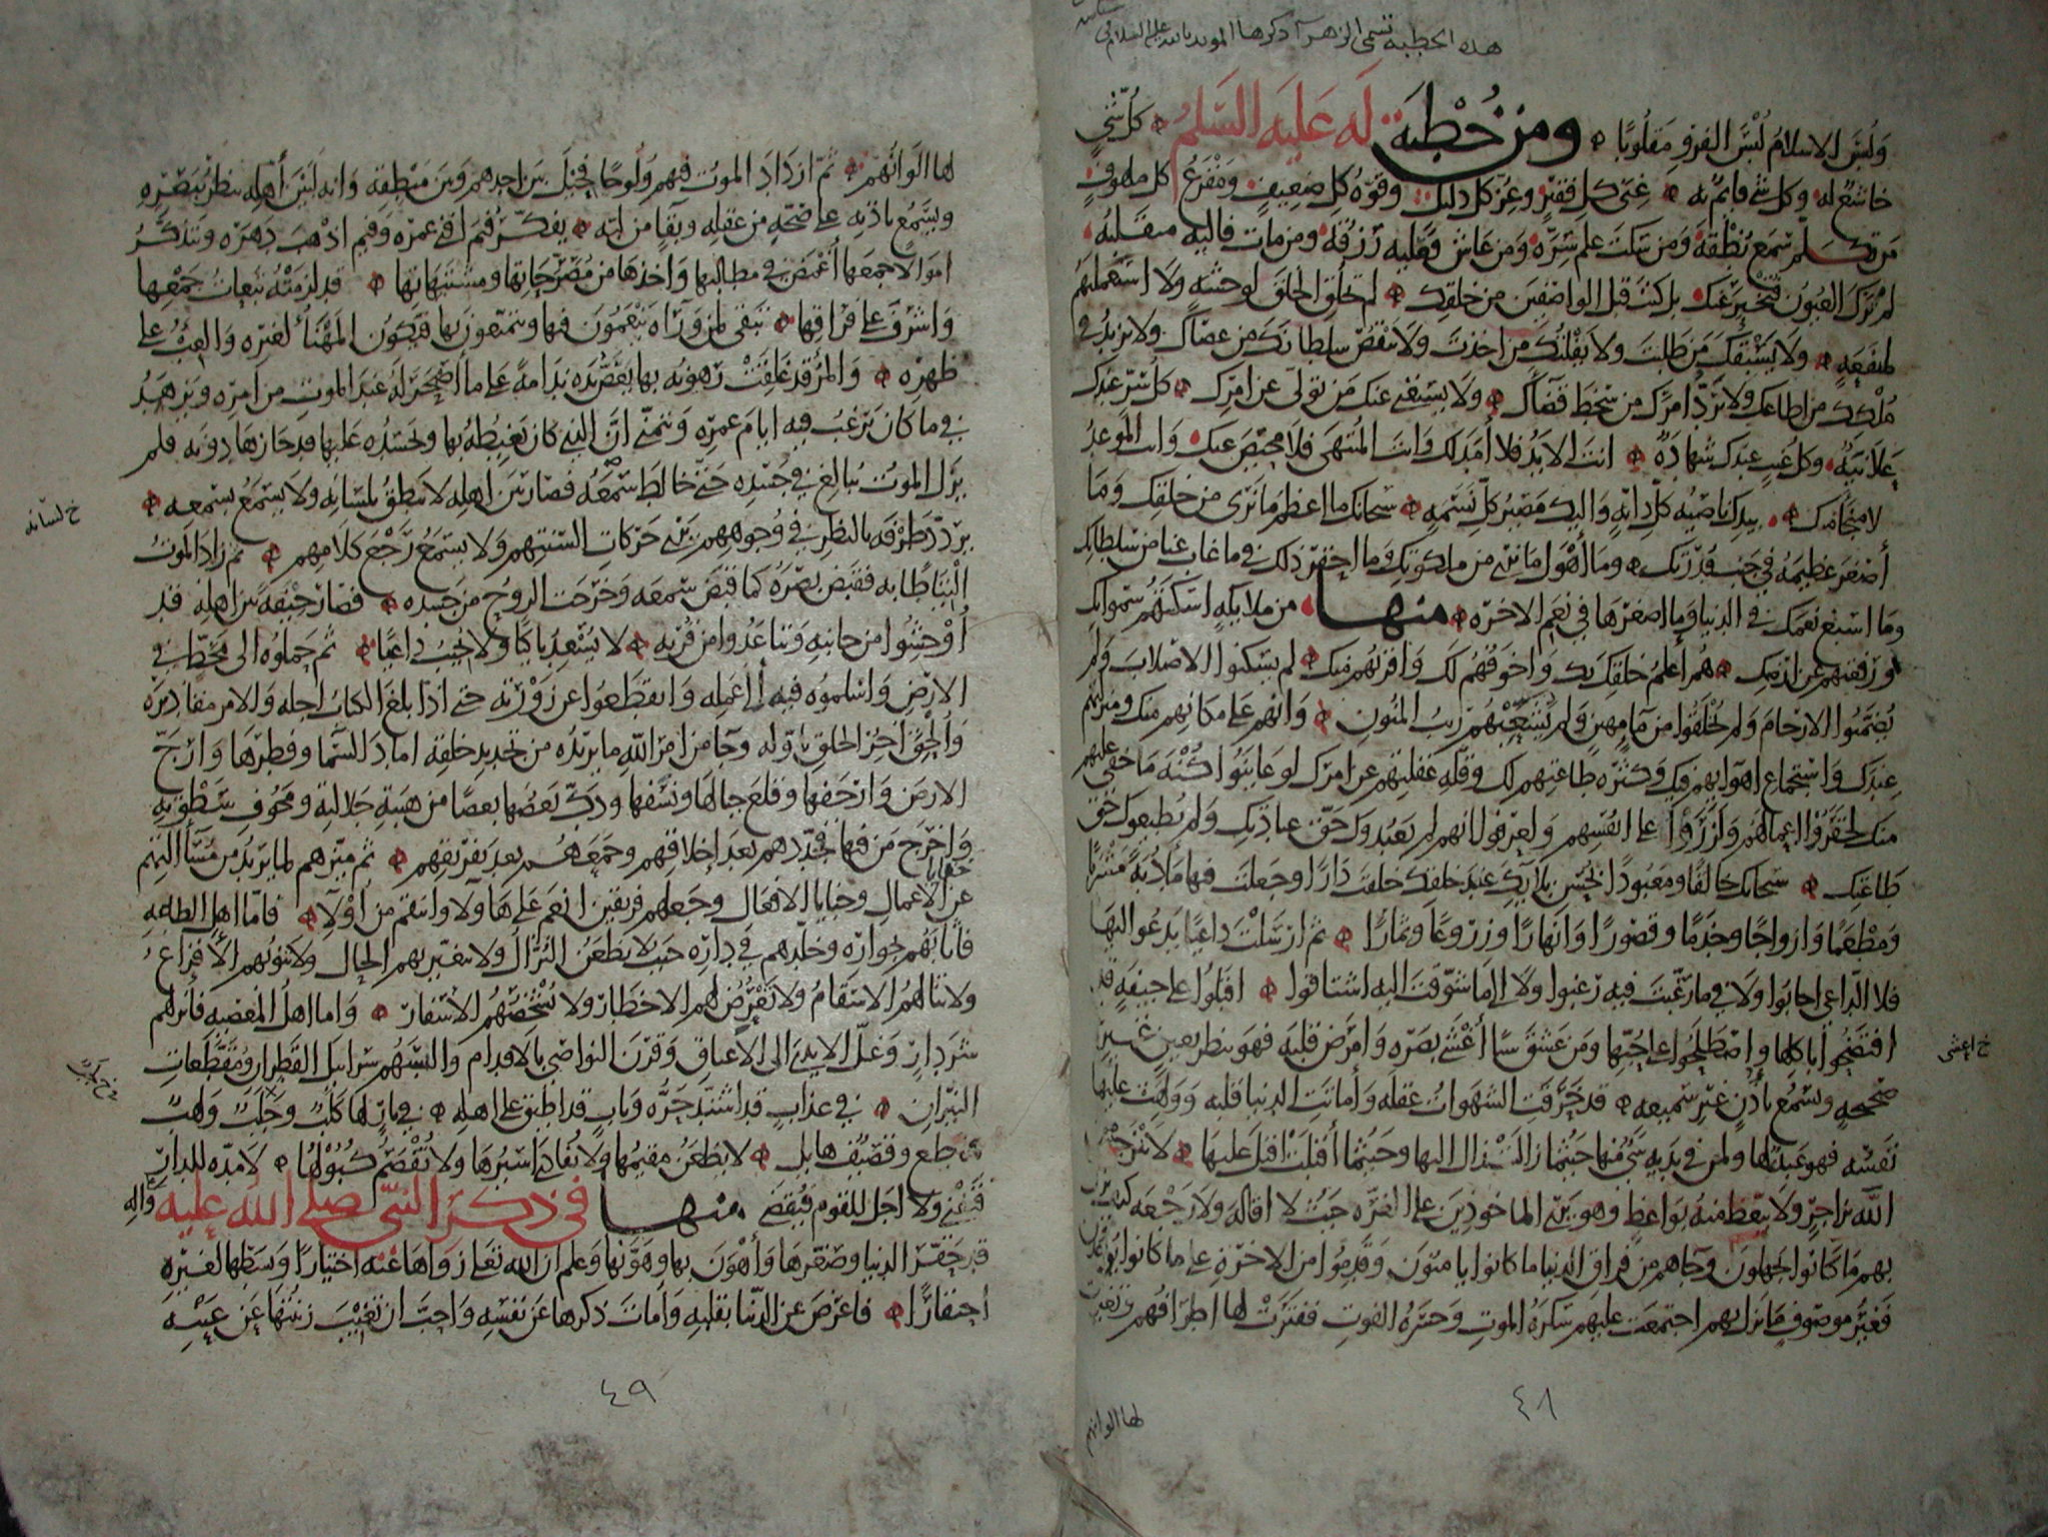 هذه الخطبة تسمى الزهرا ذكرها المويد بالله عليه السلام في
ولبس الاسلام لبس الفرو مقلوبا ومن خطبة له عليه السلم كل شي
خاشع له وكل شي قايم به غنى كل فقير وعز كل ذليل وقوة كل ضعيف ومفزع كل ملهوف
من تكلم سمع نطقه ومن سكت علم سره ومن عاش فعليه رزقه ومن مات فاليه منقلبه
لم ترك العيون فتخبر عنك بل كنت قبل الواصفين من خلقك لم تخلق الخلق لوحشة ولا استعملتهم
لمنفعة ولا يسبقك من طلبت ولا يفلتك من اخذت ولا ينقص سلطانك من عصاك ولا يزيد في
ملكك من اطاعك ولا يرد امرك من سخط قضاك ولا يستغني عنك من تولى عن امرك كل سر عندك
علانية وكل غيب عندك شهادة انت الابد فلا امد لك وانت المنتهى فلا محيص عنك وانت الموعد
لا منجا منك بيدك ناصية كل دابة واليك مصير كل نسمة سبحانك ما اعظم ما نرى من خلقك وما
أصغر عظيمه في جنب قدرتك وما أهول ما نرى من ملكوتك وما احقر ذلك فيما غاب عنا من سلطانك
وما اسبغ نعمك في الدنيا وما اصغرها في نعم الاخرة منها من ملايكة اسكنتهم سمواتك
ورفعتهم عن ارضك هم أعلم خلقك بك واخوفهم لك واقربهم منك لم يسكنوا الاصلاب ولم
يضمنوا الارحام ولم يخلقوا من ما مهين ولم يتشعبهم ريب المنون وانهم على مكانهم منك ومنزلتهم
عندك واستجماع اهوايهم فيك وكثرة طاعتهم لك وقلة غفلتهم عن امرك لو عاينوا كنه ما خفي عليهم
منك لحقروا اعمالهم ولزروا على انفسهم ولعرفوا انهم لم يعبدوك حق عبادتك ولم يطيعوك حق
طاعتك سبحانك خالقا ومعبودا بحسن بلايك عند خلقك خلقت دارا وجعلت فيها مأدبة مشربا
ومطعما وازواجا وخدما وقصورا وانهارا وزروعا وثمارا ثم ارسلت داعيا يدعوا اليها
فلا الداعي اجابوا ولا فيما رغبت فيه رغبوا ولا الى ما شوقت اليه اشتاقوا اقبلوا على جيفة قد
افتضحوا باكلها واصطلحوا على حبها ومن عشق شيا أعشى بصره وامرض قلبه فهو ينظر بعين غير
خ اعشى
صحيحة ويسمع بأذن غير سميعة قد خرقت الشهوات عقله وأماتت الدنيا قلبه وولهت عليها
نفسه فهو عبد لها ولمن في يديه شي منها حيثما زالت زال اليها وحيثما أقبلت اقبل عليها لا ينزجر من
الله بزاجر ولا يتعظ منه بواعظ وهو يرى الماخوذين على الغرة حيث لا اقالة ولا رجعة كيف نزل
بهم ما كانوا يجهلون وجاهم من فراق الدنيا ما كانوا يامنون وقدموا من الاخرة على ما كانوا يوعدون
فغير موصوف ما نزل بهم اجتمعت عليهم سكرة الموت وحسرة الفوت ففترت لها اطرافهم وتغيرت
لها الوانهم
٤٨
لها الوانهم ثم ازداد الموت فيهم ولوجا فحيل بين احدهم وبين منطقه وانه لبين أهله ينظر ببصره
ويسمع باذنه على صحة من عقله وبقا من لبه يفكر فيم افنى عمره وفيم اذهب دهره ويتذكر
اموالا جمعها أغمض في مطالبها واخذها من مصرحاتها ومشتبهاتها قد لزمته تبعات جمعها
واشرف على فراقها تبقى لمن وراه ينعمون فيها ويتمتعون بها فيكون المهنأ لغيره والعبء على
ظهره والمرء قد غلقت رهونه بها يعض يده ندامة على ما أصحر له عند الموت من امره ويزهد
في ما كان يرغب فيه ايام عمره ويتمنى ان الذي كان يغبطه بها ويحسده عليها قد حازها دونه فلم
يزل الموت يبالغ في جسده حتى خالط سمعه فصار بين أهله لا ينطق بلسانه ولا يسمع بسمعه
خ لسانه
يردد طرفه بالنظر في وجوههم يرى حركات السنتهم ولا يسمع رجع كلامهم ثم زاد الموت
التياطا به فقبض بصره كما قبض سمعه وخرجت الروح من جسده فصار جيفة بين اهله قد
أوحشوا من جانبه وتباعدوا من قربه لا يسعد باكيا ولا يجيب داعيا ثم حملوه الى مخط في
الارض واسلموه فيه الى عمله وانقطعوا عن زورته حتى اذا بلغ الكتاب اجله والامر مقاديره
وألحق اخر الخلق باوله وجا من امر الله ما يريده من تجديد خلقه اماد السما وفطرها وارج
الارض وارجفها وقلع جبالها ونسفها ودك بعضها بعضا من هيبة جلالته ومخوف سطوته
واخرج من فيها فجددهم بعد إخلاقهم وجمعهم بعد تفريقهم ثم ميزهم لما يريد من مسآلتهم
خفايا
عن الاعمال وخبايا الافعال وجعلهم فريقين انعم على هاولا وانتقم من أولا فاما اهل الطاعة
فاثابهم بجواره وخلدهم في داره حيث لا يظعن النزال ولا يتغير بهم الحال ولا تنوبهم الأفزاع
ولا تنالهم الاسقام ولا تعرض لهم الاخطار ولا تشخصهم الأسفار واما اهل المعصية فأنزلهم
شر دار وغل الايدي الى الأعناق وقرن النواصي بالاقدام والبسهم سرابيل القطران ومقطعات
النيران في عذاب قد اشتد حره وباب قد اطبق على اهله في نار لها كلب وجلب ولهب
ساطع وقصيف هايل لا يظعن مقيمها ولا يفادى اسيرها ولا تفصم كبولها لا مدة للدار
فتفنى ولا اجل للقوم فيقضى منها في ذكر النبي صلى الله عليه واله
قد حقر الدنيا وصغرها وأهون بها وهونها وعلم ان الله تعالى زواها عنه اختيارا وبسطها لغيره
احتقارا فاعرض عن الدنيا بقلبه وأمات ذكرها عن نفسه واحب ان تغيب زينتها عن عينه
٤٩